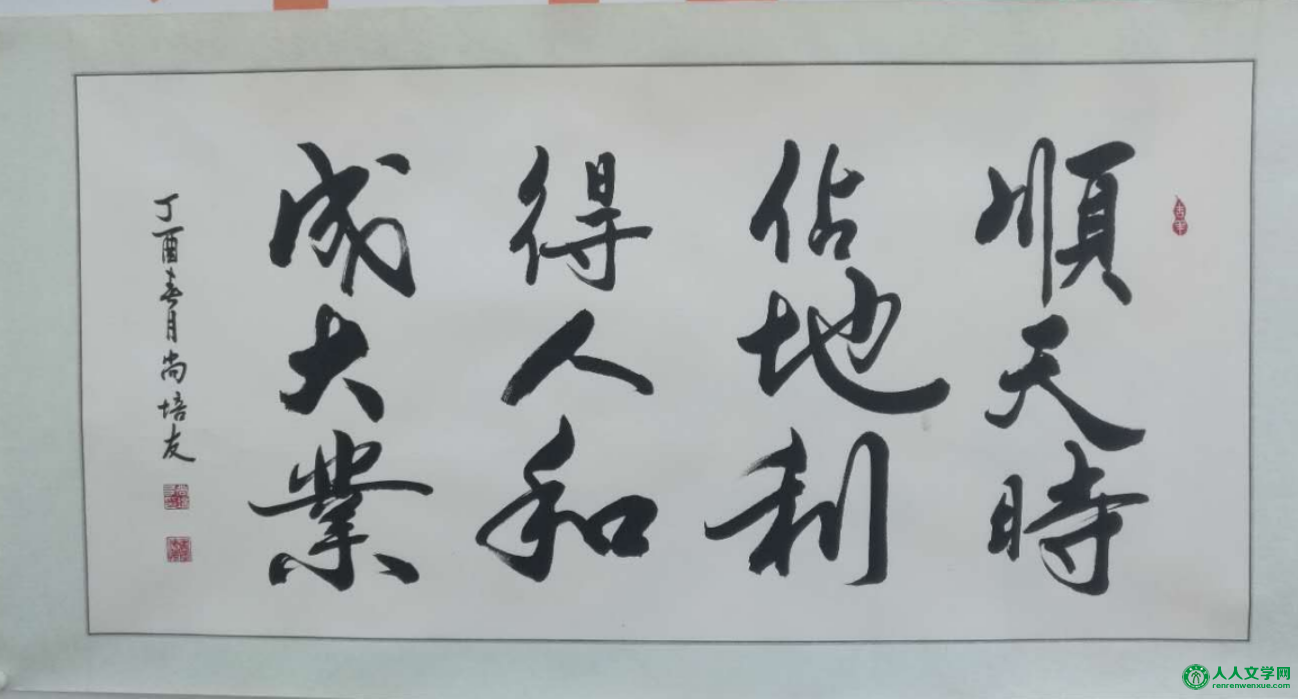 順天時
佔地利
得人和
成大業
丁酉春月尚培友
人人文学网
renrenwenxue.com